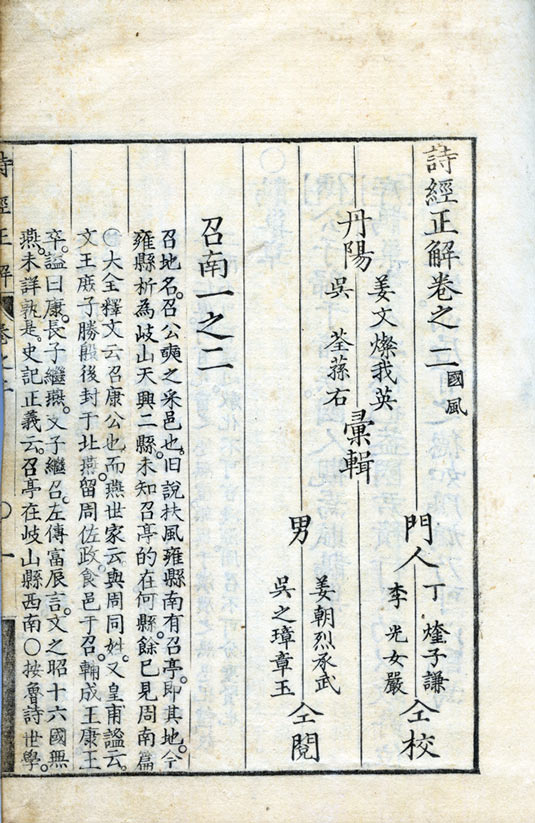 詩經正解卷之二 國風
丹陽 姜文燦我英 彙輯
吳 荃蓀右
門人 丁煃子謙 仝校
李光女嚴
男 姜朝烈承武 仝閱
吳之璋章玉
召南一之二
召地名。召公奭之采邑也。旧說扶風雍縣南有召亭。即其地。今
雍縣析為岐山天興二縣。未知召亭的在何縣。餘已見周南篇
○大全釋文云。召康公也。而燕世家云。與周同姓。又皇甫謐云。
文王庶子。勝殷後封于北燕。留周佐政。食邑于召。輔成王康王
卒。謚曰康。長子繼燕。支子繼召。左傳富辰言。文之昭十六國無
燕。未詳孰是。史記正義云。召亭在岐山縣西南○按魯詩世學。
詩經正解 卷之二 ○ 一